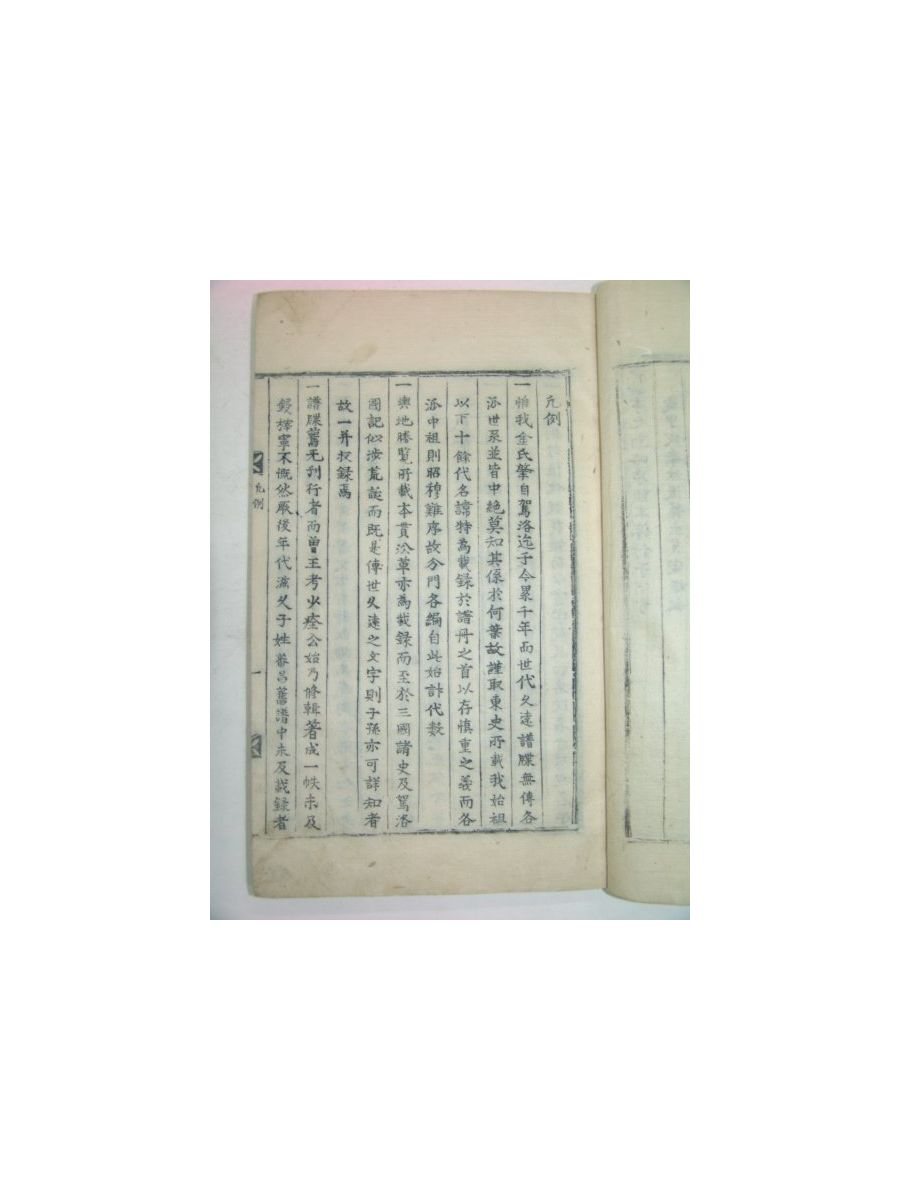 凡例
一惟我金氏肇自駕洛迄于今累千年而世代久遠譜牒無傳各
派世系並皆中絶莫知其係於何葉故謹取東史所載我始祖
以下十餘代名諱特為載録於譜冊之首以存慎重之義而各
派中祖則昭穆難序故分門各編自此始計代數
一輿地勝覽所載本貫沿革亦為載録而至於三國諸史及駕洛
國記似涉荒誕而既是傳世久遠之文字則子孫亦可詳知者
故一并收録焉
一譜牒舊无刊行者而曽王考少痊公始乃修輯著成一帙未及
鋟梓寧不慨然厥後年代漸久子姓蕃昌舊譜中未及載録者
凡例
一